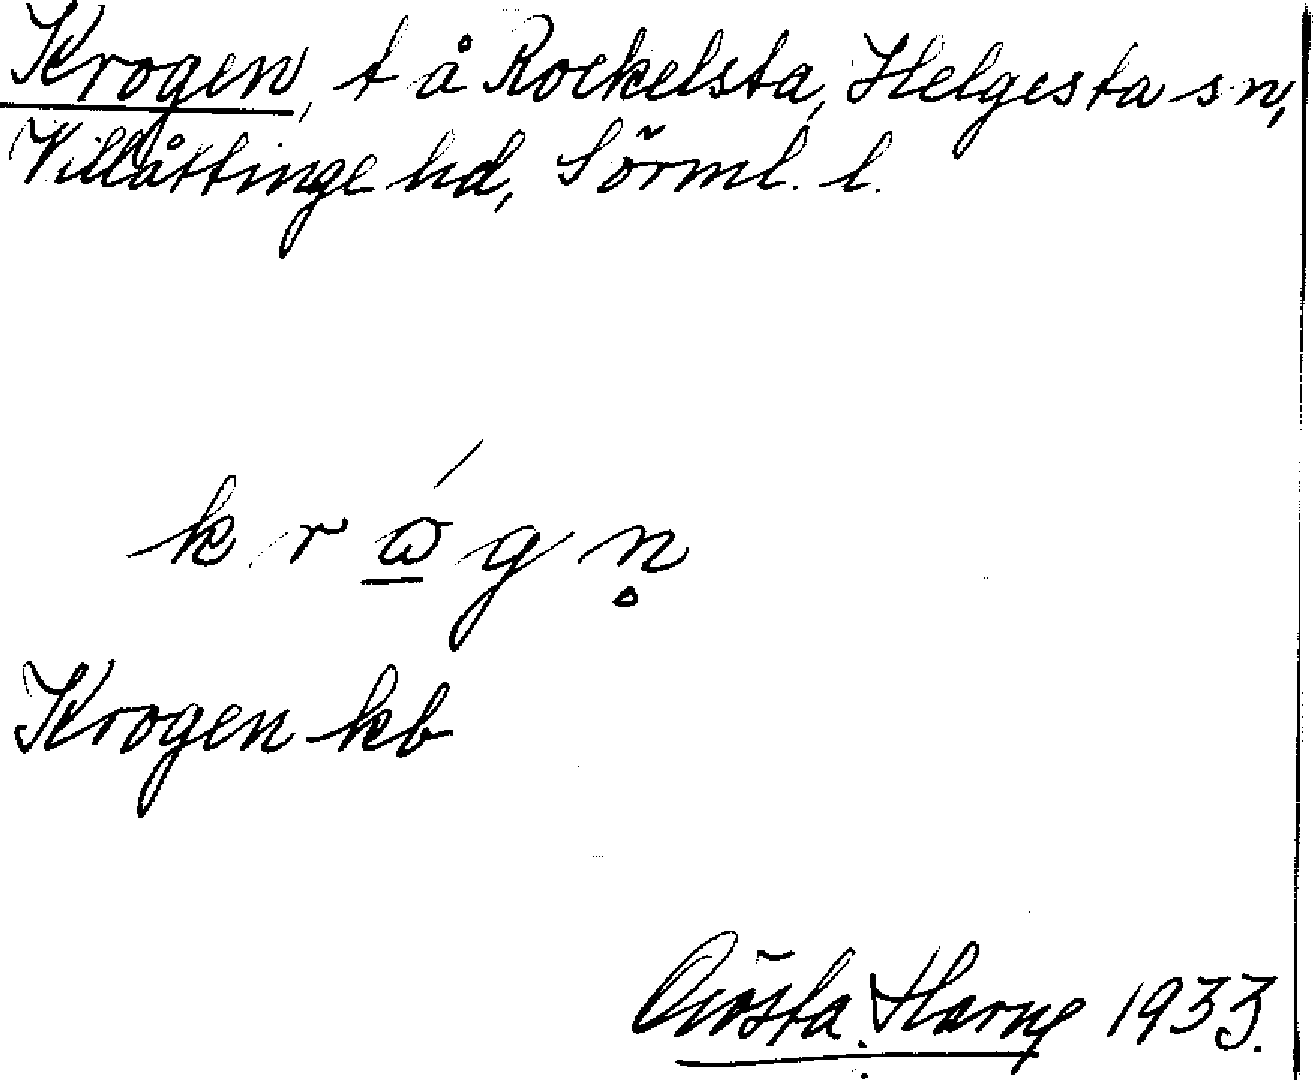 Krogen, t å Rockelsta, Helgesta sn,
Villåttinge hd, Sörml. l.
k r ó g n̥
Krogen kb
Gösta 1933.